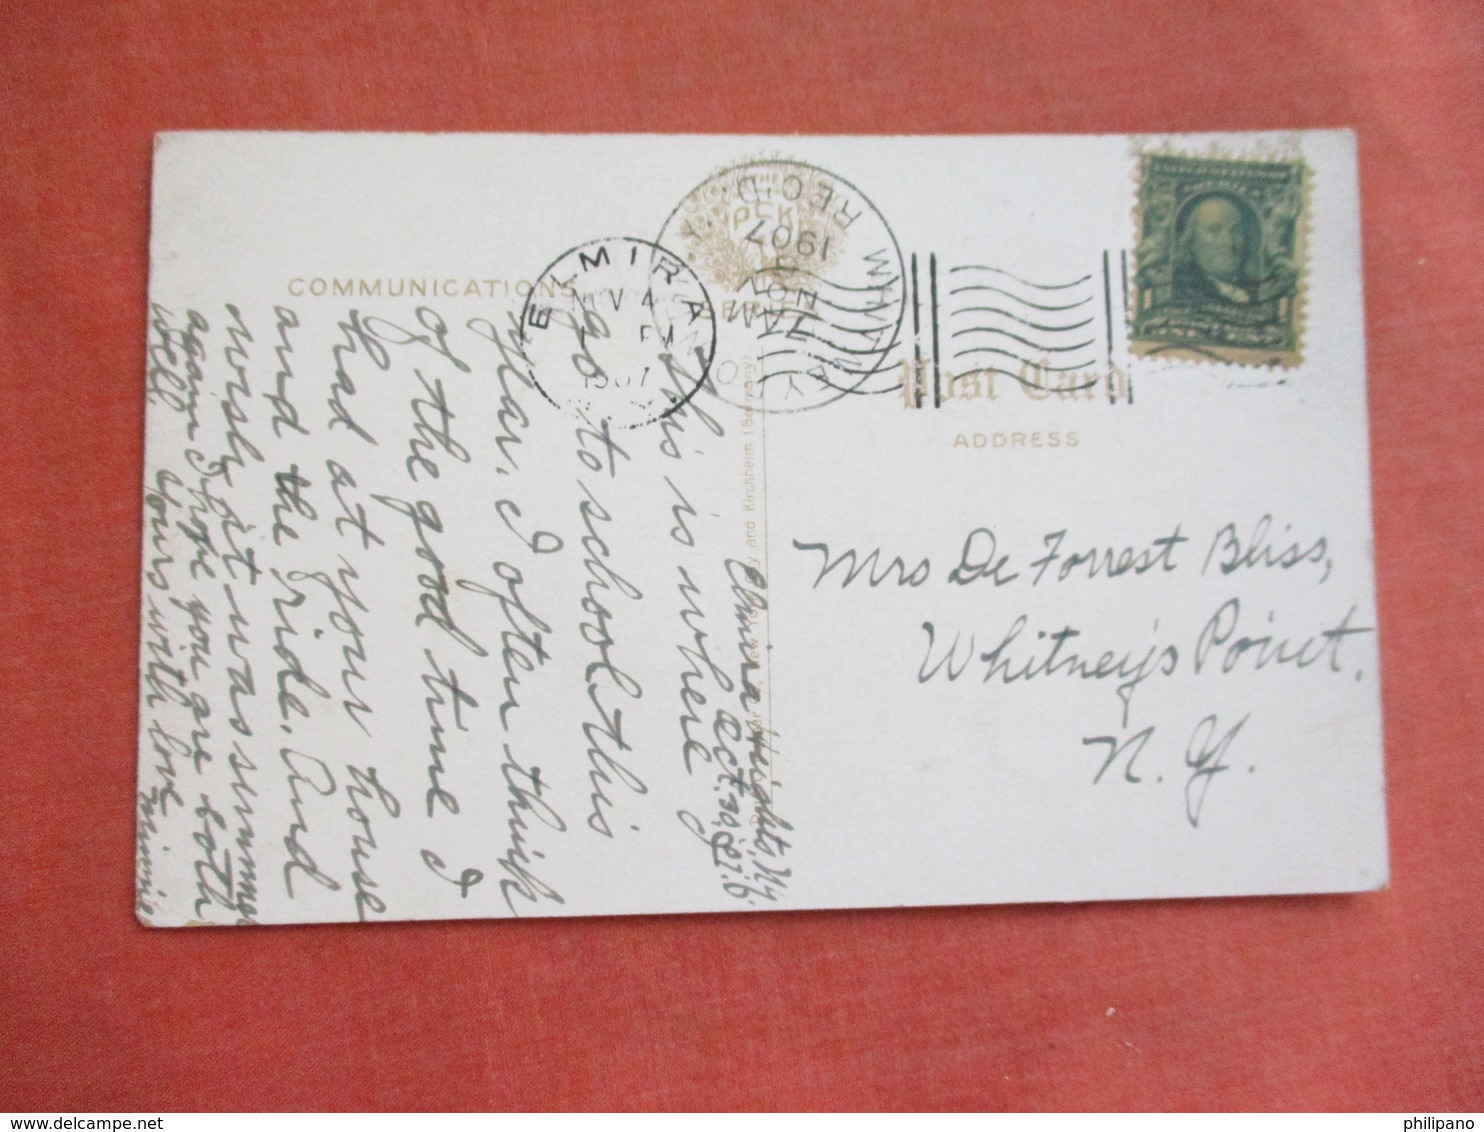 COMMUNICATIONS
Post Card
ADDRESS
THE
PCK
SERIES
ELMIRA
NOV 4
1907
WHITNEYS
REC'D.
1907
NOV
7 AM
Elmira Heights, N.Y.
Oct. 30, '07.
This is where I
go to school this
year. I often think
of the good time I
had at your house
and the ride. And
nossly it was simmer
again I hope you are both
well. Yours with love
Minnie
and Kirchheim (Germany)
Mrs De Forrest Bliss,
Whitney's Point.
N. Y.
philipano